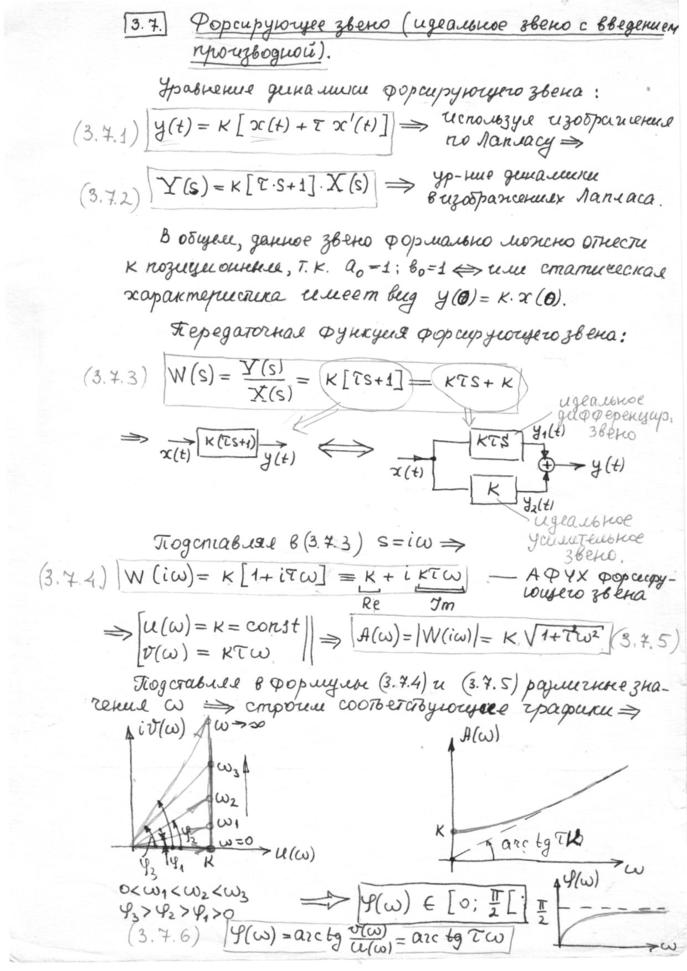 3.7. Форсирующее звено (идеальное звено с введением
производной).
Уравнение динамики форсирующего звена:
(3.7.1) y(t) = K[x(t) + τ x'(t)] ⇒ используя изображения
по Лапласу ⇒
(3.7.2) Y(s) = K[τ·s+1]·X(s) ⇒ ур-ние динамики
в изображениях Лапласа.
В общем, данное звено формально можно отнести
к позиционным, т.к. a₀=1; b₀=1 ⇔ или статическая
характеристика имеет вид y(0) = K·x(0).
Передаточная функция форсирующего звена:
(3.7.3) W(s) = Y(s)/X(s) = K[τs+1] = Kτs + K
⇒ x(t) K(τs+1) y(t) ⇔ x(t) Kτs y₁(t) K y₂(t) + y(t)
идеальное
дифференцир.
звено
идеальное
усилительное
звено.
Подставляя в (3.7.3) s=iω ⇒
(3.7.4) W(iω) = K[1+iτω] = K + i Kτω — АФЧХ форсиру-
ющего звена
Re Im
⇒ [u(ω) = K = const
v(ω) = Kτω ⇒ A(ω) = |W(iω)| = K·√(1+τ²ω²) (3.7.5)
Подставляя в формулы (3.7.4) и (3.7.5) различные зна-
чения ω ⇒ строим соответствующие графики ⇒
iv(ω) ω→∞
ω₃
ω₂
ω₁
ω=0
φ₃ φ₁ φ₂ K u(ω)
A(ω)
K
arctg τK
ω
0<ω₁<ω₂<ω₃
φ₃>φ₂>φ₁>0
⇒ φ(ω) ∈ [0; π/2[;
φ(ω)
π/2
ω
(3.7.6) φ(ω) = arctg v(ω)/u(ω) = arctg τω